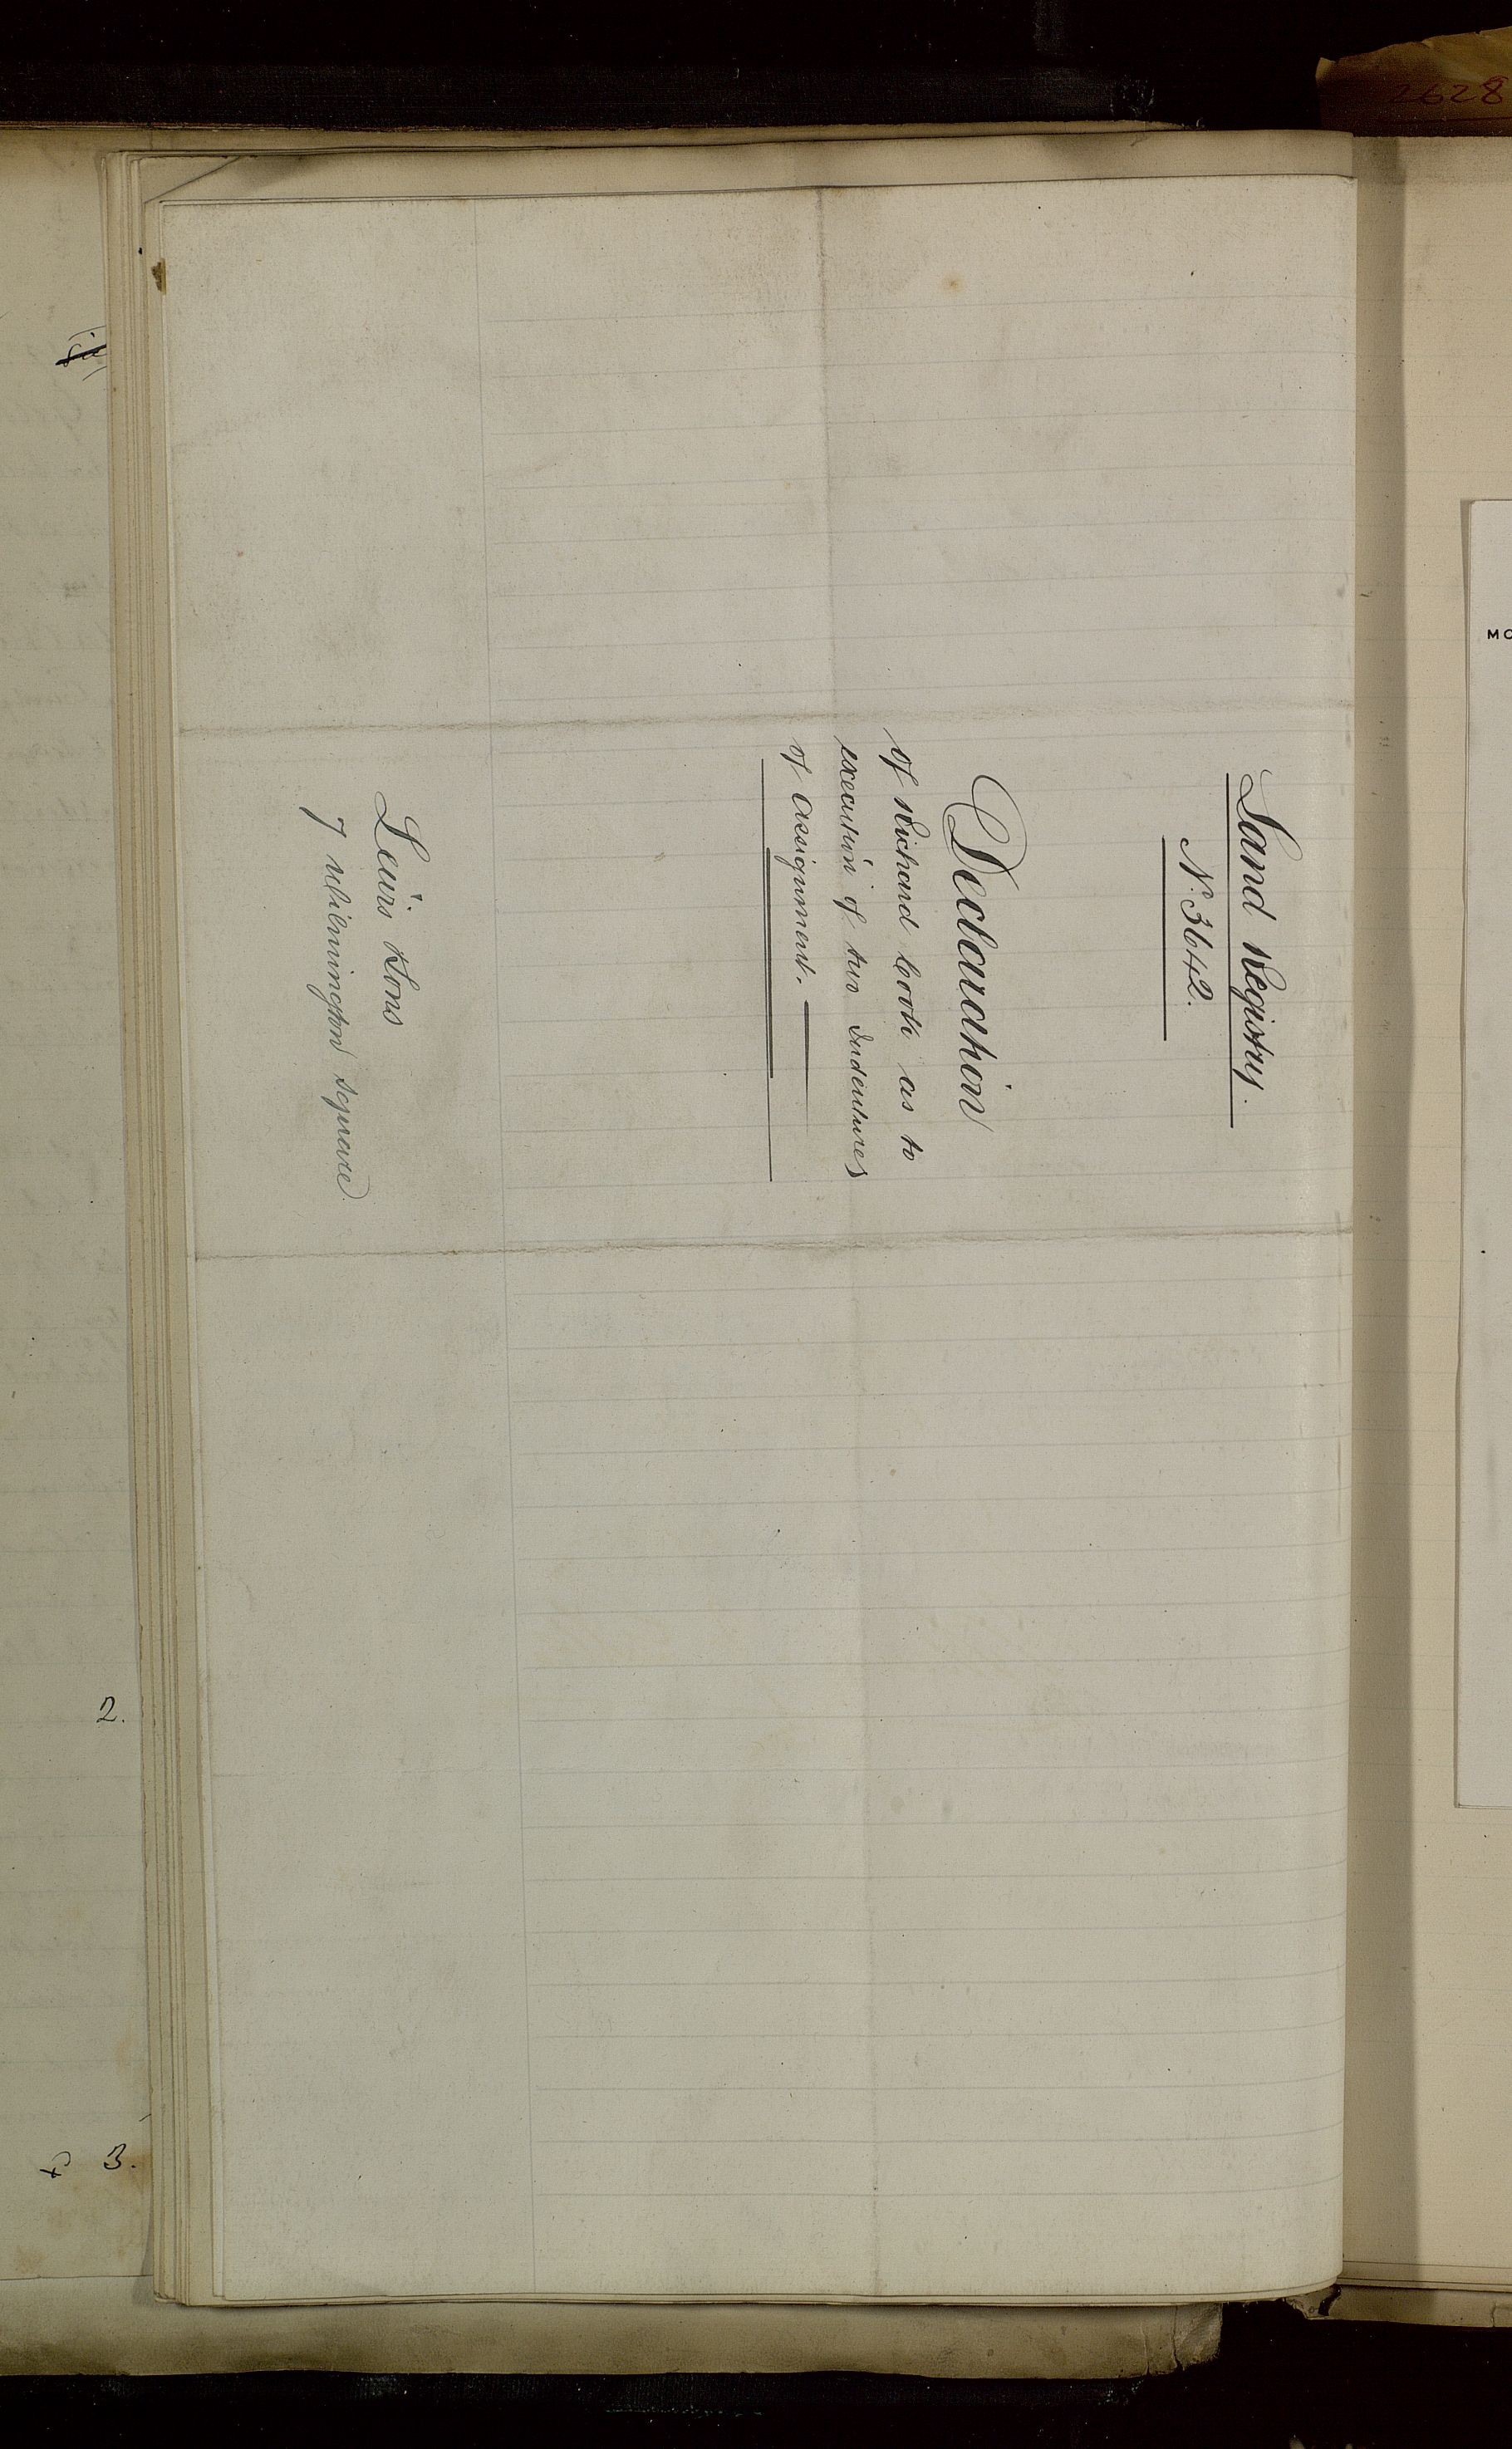 Land Registry.
No. 3642.
Declaration
of Richard Cook as to
execution of two Indentures
of Assignment.
Lewis & Sons
7 Wilmington Square
2.
3.
2628
MO